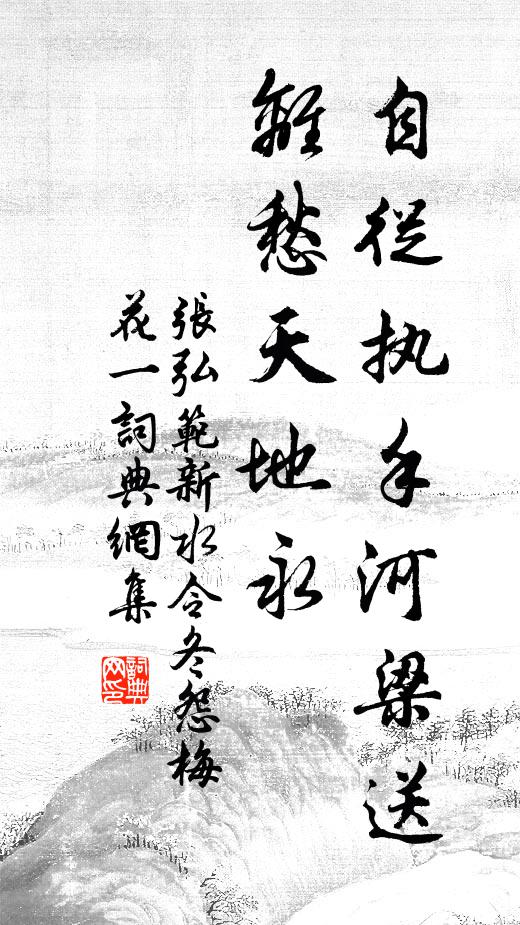 自從执手河梁送
離愁天地永
張弘範新水令冬怨梅
花一詞典網集
詞典
网印